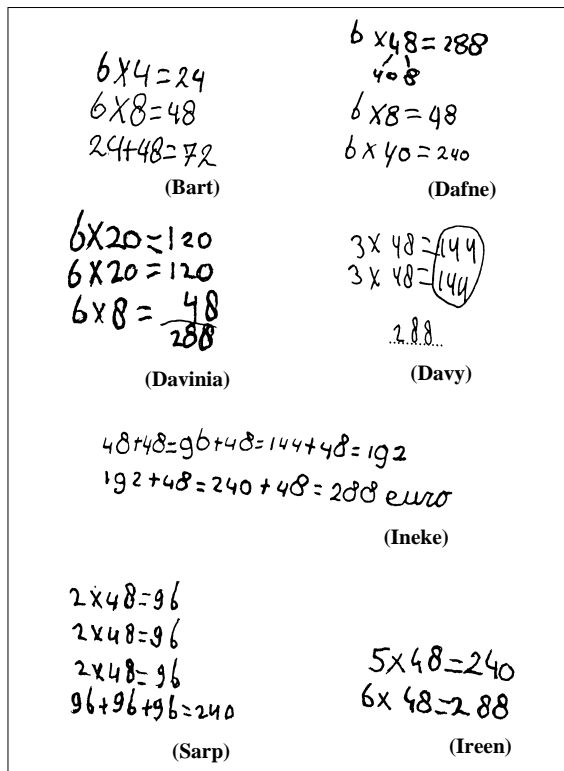 6 × 4 = 24
6 × 8 = 48
24 + 48 = 72
(Bart)
6 × 48 = 288
40 8
6 × 8 = 48
6 × 40 = 240
(Dafne)
6 × 20 = 120
6 × 20 = 120
6 × 8 = 48
288
(Davinia)
3 × 48 = 144
3 × 48 = 144
288
(Davy)
48+48=96+48=144+48=192
192+48=240+48=288 euro
(Ineke)
2 × 48 = 96
2 × 48 = 96
2 × 48 = 96
96+96+96=240
(Sarp)
5 × 48 = 240
6 × 48 = 288
(Ireen)